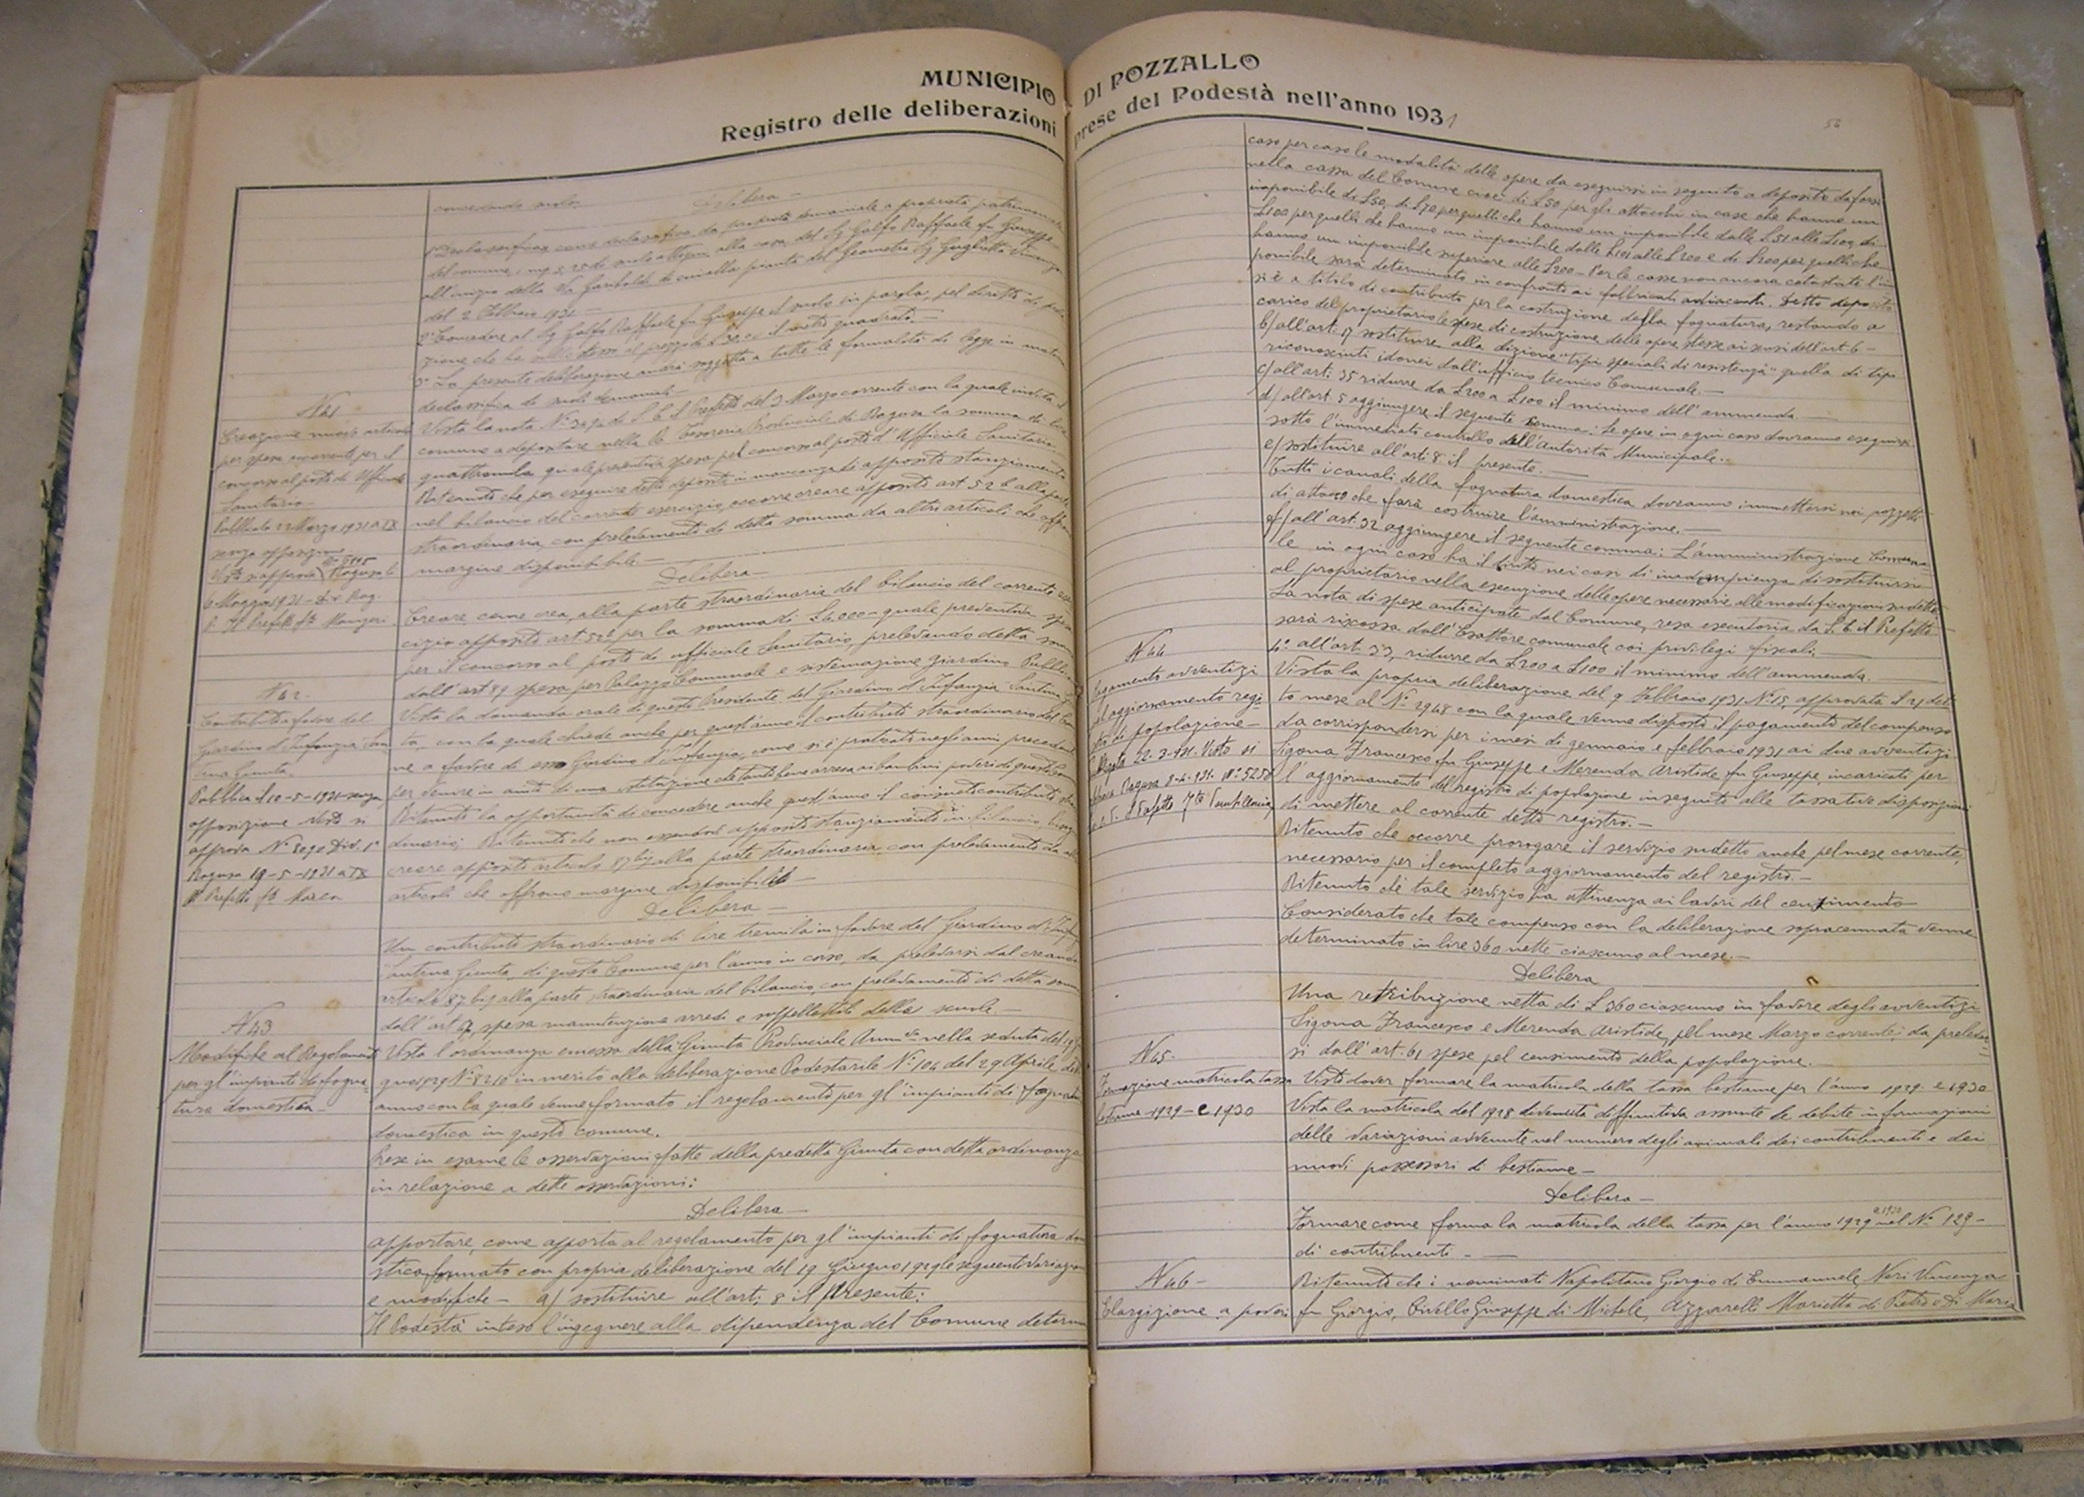 MUNICIPIO DI POZZALLO
Registro delle deliberazioni prese del Podestà nell'anno 1931
56
concedendo
Delibera
del comune, mq
all'inizio della Via Garibaldi di cui alla pianta del Geometra Sg
del 2 Febbraio 1931
2° Concedere al Sg Galfo Raffaele fu Giuseppe il suolo in parola, pel diritto di
3° La presente deliberazione andrà soggetta a tutte le formalità di legge in
declassifica di suoli demaniali
N 41
Creazione nuovo articolo
per spesa occorrente per il
concorso al posto di Ufficiale
Sanitario
Pubblicata 22 Marzo 1931 a IX
senza opposizione
Visto si approva Ragusa li
6 Maggio 1931
Vista la nota N° di S. E. il Prefetto del 3 Marzo corrente con la quale invita il
comune a depositare nella R. Tesoreria Provinciale di Ragusa la somma di lire
quattromila quale preventiva spesa pel concorso al posto d'Ufficiale Sanitario
Ritenuto che per eseguire detto deposito in mancanza di apposito stanziamento
nel bilancio del corrente esercizio, occorre creare apposito art 52 b alla parte
straordinaria, con prelevamento di detta somma da altri articoli che offrono
margine disponibile
Delibera
Creare come crea, alla parte straordinaria del bilancio del corrente eser
cizio apposito art 52 b per la somma di L 4000 quale preventiva spesa
per il concorso al posto di ufficiale Sanitario, prelevando detta somma
dall'art 89 spesa per Palazzo Comunale e sistemazione giardino Pubblico
N 42.
Contributo a favore del
Giardino d'Infanzia San
tina Giunta.
Pubblica il 10-5-1931 senza
opposizione Visto si
approva N° 8090 Div. 1ª
Ragusa 19-5-1931 a IX
Il Prefetto fto Marca
Vista la domanda orale di questo Presidente del Giardino d'Infanzia Santina
ta, con la quale chiede anche per quest'anno il contributo straordinario del
ne a favore di esso Giardino d'Infanzia, come si è praticato negli anni precedenti
per venire in aiuto di una istituzione che tanto bene arreca ai bambini poveri di questo
Ritenuta la opportunità di concedere anche quest'anno il consueto contributo
dinario; Ritenuto che non essendovi apposito stanziamento in bilancio, bisogna
creare apposito articolo 87 bis alla parte straordinaria con prelevamento da
articoli che offrono margine disponibile
Delibera
Un contributo straordinario di lire tremila in favore del Giardino d'Inf
Santina Giunta, di questo Comune per l'anno in corso, da prelevarsi dal creando
articolo 87 bis alla parte straordinaria del bilancio, con prelevamento di detta somma
dall'art spesa manutenzione arredi e suppellettili delle scuole.
N 43
Modifiche al Regolamento
per gl'impianti di fogna
tura domestica
Vista l'ordinanza emessa dalla Giunta Provinciale Amm.va nella seduta del
N° 8210 in merito alla deliberazione Podestarile N° 104 del 29 Aprile
anno con la quale venne formato il regolamento per gl'impianti di fognatura
domestica in questo comune.
Prese in esame le osservazioni fatte della predetta Giunta con detta ordinanza
in relazione a dette osservazioni:
Delibera
apportare, come apporta al regolamento per gl'impianti di fognatura dome
stica formato con propria deliberazione del 19 Giugno 1929 le seguenti variazioni
e modifiche – a) sostituire all'art: 8 il presente:
Il Podestà inteso l'ingegnere alla dipendenza del Comune determi
caso per caso le modalità delle opere da eseguirsi in seguito a deposito da farsi
nella cassa del Comune cioè di L50 per gli attacchi in case che hanno un
imponibile di L50, di L70 per quelli che hanno un imponibile dalle L51 alle L100, di
L100 per quelli che hanno un imponibile dalle L101 alle L200 e di L200 per quelli che
hanno un imponibile superiore alle L200 – Per le case non ancora catastate l'im
ponibile sarà determinato in confronto ai fabbricati adiacenti. Detto deposito
si è a titolo di contributo per la costruzione della fognatura, restando a
carico del proprietario le spese di costruzione delle opere stesse ai sensi dell'art. 6 –
b) all'art. 17 sostituire alla dizione "tipi speciali di resistenza" quella di tipi
riconosciuti idonei dall'ufficio tecnico Comunale.
c) all'art. 35 ridurre da L200 a L100 il minimo dell'ammenda
d) all'art. 5 aggiungere il seguente comma: Le opere in ogni caso dovranno eseguirsi
sotto l'immediato controllo dell'Autorità Municipale.
e) sostituire all'art. 8 il presente.
Tutti i canali della fognatura domestica dovranno immettersi nei pozzetti
di attacco che farà costruire l'amministrazione.
f) all'art. 32 aggiungere il seguente comma: L'amministrazione Comuna
le in ogni caso ha il diritto nei casi di inadempienza di sostituirsi
al proprietario nella esecuzione delle opere necessarie alle modificazioni sudette
La nota di spese anticipate dal Comune, resa esecutoria da S. E. il Prefetto
sarà riscossa dall'Esattore comunale coi privilegi fiscali.
all'art. 33, ridurre da L200 a L100 il minimo dell'ammenda.
N 44
Pagamento avventizi
aggiornamento regi
stro di popolazione –
22-3-931. Visto si
Ragusa 8-4-931. N° 5258
Vista la propria deliberazione del 9 Febbraio 1931 N° 15 approvata il 21 det
to mese al N° 2948 con la quale venne disposto il pagamento del compenso
da corrispondersi per i mesi di gennaio e febbraio 1931 ai due avventizi
Sigona Francesco fu Giuseppe e Merenda Aristide fu Giuseppe, incaricati per
l'aggiornamento del registro di popolazione in seguito alle tassative disposizioni
di mettere al corrente detto registro.
Ritenuto che occorre prorogare il servizio sudetto anche pel mese corrente,
necessario per il completo aggiornamento del registro.
Ritenuto che tale servizio ha attinenza ai lavori del censimento
Considerato che tale compenso con la deliberazione sopracennata venne
determinato in lire 360 nette ciascuno al mese.
Delibera
Una retribuzione netta di L 360 ciascuno in favore degli avventizi
Sigona Francesco e Merenda Aristide, pel mese Marzo corrente, da prelevar
si dall'art. 61 spese pel censimento della popolazione.
N 45.
Formazione matricola tassa
bestiame 1929 – e 1930
Visto dover formare la matricola della tassa bestiame per l'anno 1929 e 1930
Vista la matricola del 1928 divenuta diffinitiva assunte le debite informazioni
delle variazioni avvenute nel numero degli animali dei contribuenti e dei
nuovi possessori di bestiame –
Delibera –
Formare come forma la matricola della tassa per l'anno 1929 e 1930 nel N° 129 –
di contribuenti –
N 46 –
Elargizione a poveri
Ritenuto che i nominati Napolitano Giorgio di Emmanuele, Neri Vincenza
fu Giorgio, Civello Giuseppe di Michele, Azzarelli Marietta di Pietro e Di Maria